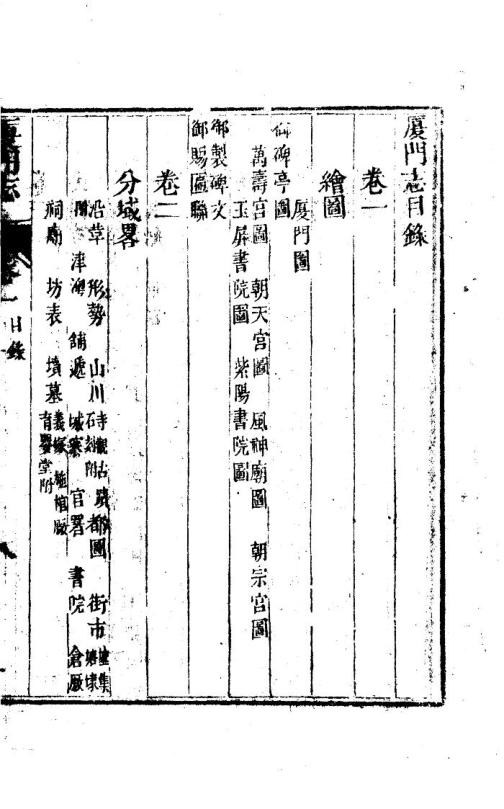 厦門志目錄
卷一
繪圖
厦門圖
御碑亭圖
萬壽宮圖 朝天宮圖 風神廟圖 朝宗宮圖
玉屏書院圖 紫陽書院圖
御製碑文
御賜匾聯
卷二
分域畧
沿革 形勢 山川 寺觀古石刻附 蹟 都圖 街市 墟集
津澳 鋪遞 城寨 官署 書院 倉廒
祠廟 坊表 墳墓 義塚 施棺廠 育嬰堂附
厦門志
目錄